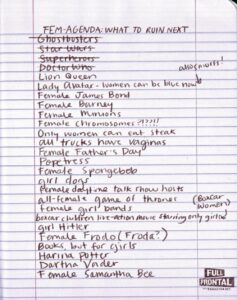 FEM-AGENDA: WHAT TO RUIN NEXT
Ghostbusters
Star Wars
Superheroes
Doctor Who
also smurfs!
Lion Queen
Lady Avatar - women can be blue now
Female James Bond
Female Barney
Female Minions
Female chromosomes?!??!!
Only women can eat steak
all trucks have vaginas
Female Father's Day
Popetress
Female Spongebob
girl dogs
female daytime talk show hosts
all-female game of thrones
(Boxcar Women)
female girl bands
boxcar children live-action movie starring only girls
girl Hitler
Female Frodo (Froda?)
Books, but for girls
Harina Potter
Dartha Vader
Female Samantha Bee
FULL FRONTAL